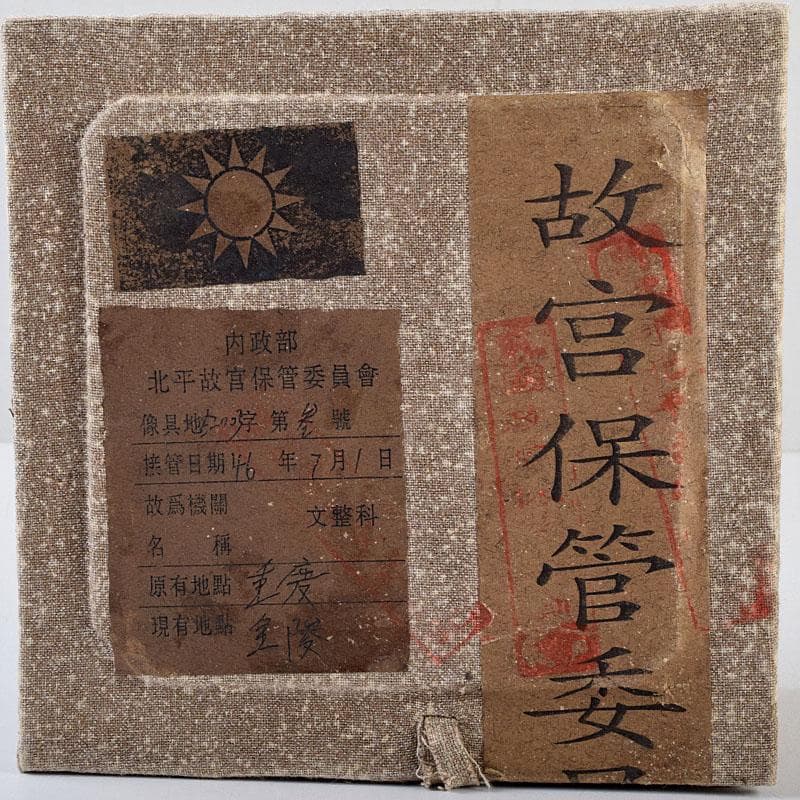 內政部
北平故宫保管委員會
像具地字 第叁號
接管日期46年7月1日
故爲機關 文整科
名稱
原有地點 重慶
現有地點
故宫保管委